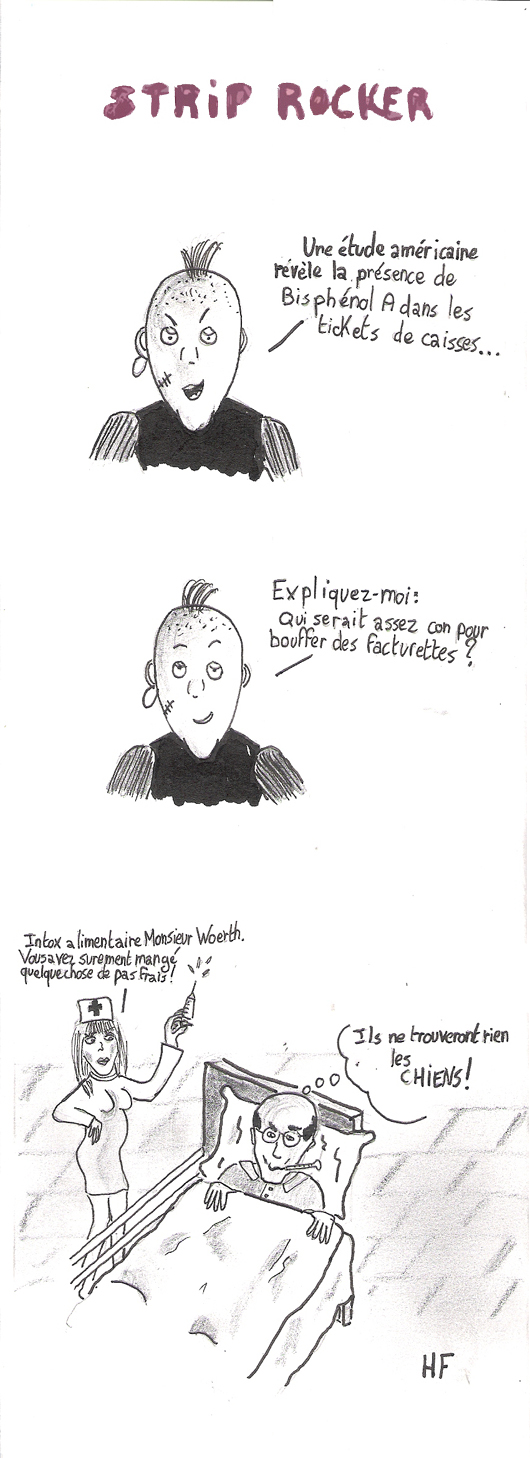 STRiP ROCKER
Une étude américaine
révèle la présence de
Bisphénol A dans les
tickets de caisses...
Expliquez-moi:
Qui serait assez con pour
bouffer des facturettes?
Intox alimentaire Monsieur Woerth.
Vous avez surement mangé
quelque chose de pas frais!
Ils ne trouveront rien
les
CHiENS!
HF